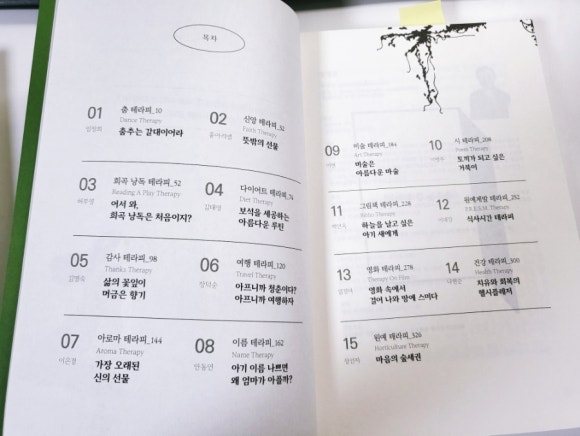 목차
01
춤 테라피_10
Dance Therapy
춤추는 갈대이어라
02
신앙 테라피_32
Faith Therapy
뜻밖의 선물
03
희곡 낭독 테라피_52
Reading A Play Therapy
어서 와,
희곡 낭독은 처음이지?
04
다이어트 테라피_74
Diet Therapy
보석을 세공하는
아름다운 루틴
05
감사 테라피_98
Thanks Therapy
삶의 꽃잎이
머금은 향기
06
여행 테라피_120
Travel Therapy
아프니까 청춘이다?
아프니까 여행하자
07
이은정
아로마 테라피_144
Aroma Therapy
가장 오래된
신의 선물
08
안동민
이름 테라피_162
Name Therapy
아기 이름 나쁘면
왜 엄마가 아플까?
09
미술 테라피_184
Art Therapy
미술은
아름다운 마술
10
시 테라피_208
Poem Therapy
토끼가 되고 싶은
거북이
11
그림책 테라피_228
Biblio Therapy
하늘을 날고 싶은
아기 새에게
12
원예계발 테라피_252
P.R.E.S.M. Therapy
식사시간 테라피
13
영화 테라피_278
Therapy On Film
영화 속에서
걸어 나와 맘에 스미다
14
건강 테라피_300
Health Therapy
치유와 회복의
행시플레저
15
원예 테라피_326
Horticulture Therapy
마음의 숲세권